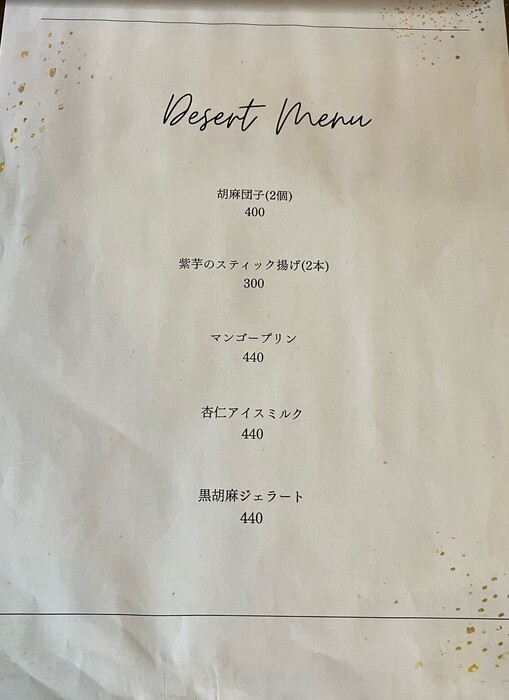 Desert Menu
胡麻団子(2個)
400
紫芋のスティック揚げ(2本)
300
マンゴープリン
440
杏仁アイスミルク
440
黒胡麻ジェラート
440